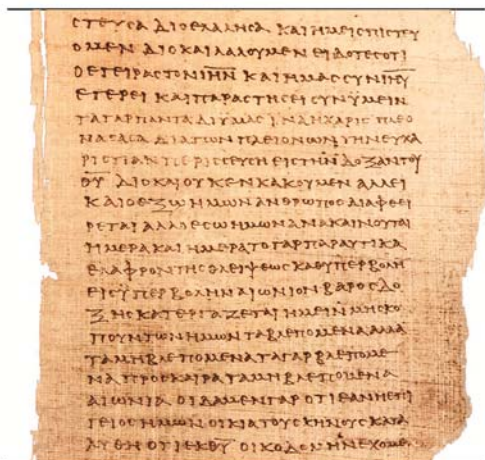 ϹΤΕΥϹΑΔΙΟΕΛΑΛΗϹΑΚΑΙΗΜΕΙϹΠΙϹΤΕΥ
ΟΜΕΝΔΙΟΚΑΙΛΑΛΟΥΜΕΝΕΙΔΟΤΕϹΟΤΙ
ΟΕΓΕΙΡΑϹΤΟΝΙ̅Η̅Ν̅ΚΑΙΗΜΑϹϹΥΝΙ̅Η̅Υ̅
ΕΓΕΡΕΙΚΑΙΠΑΡΑϹΤΗϹΕΙϹΥΝΫΜΕΙΝ
ΤΑΓΑΡΠΑΝΤΑΔΙΥΜΑϹΙΝΑΗΧΑΡΙϹΠΛΕΟ
ΝΑϹΑϹΑΔΙΑΤΩΝΠΛΕΙΟΝΩΝΤΗΝΕΥΧΑ
ΡΙϹΤΙΑΝΠΕΡΙϹϹΕΥϹΗΕΙϹΤΗΝΔΟΞΑΝΤΟΥ
Θ̅Υ̅ΔΙΟΚΑΙΟΥΚΕΝΚΑΚΟΥΜΕΝΑΛΛΕΙ
ΚΑΙΟΕΞΩΗΜΩΝΑΝΘΡΩΠΟϹΔΙΑΦΘΕΙ
ΡΕΤΑΙΑΛΛΟΕϹΩΗΜΩΝΑΝΑΚΑΙΝΟΥΤΑΙ
ΗΜΕΡΑΚΑΙΗΜΕΡΑΤΟΓΑΡΠΑΡΑΥΤΙΚΑ
ΕΛΑΦΡΟΝΤΗϹΘΛΕΙΨΕΩϹΚΑΘΥΠΕΡΒΟΛΗ
ΕΙϹΥΠΕΡΒΟΛΗΝΑΙΩΝΙΟΝΒΑΡΟϹΔΟ
ΞΗϹΚΑΤΕΡΓΑΖΕΤΑΙΗΜΕΙΝΜΗϹΚΟ
ΠΟΥΝΤΩΝΗΜΩΝΤΑΒΛΕΠΟΜΕΝΑΑΛΛΑ
ΤΑΜΗΒΛΕΠΟΜΕΝΑΤΑΓΑΡΒΛΕΠΟΜΕ
ΝΑΠΡΟϹΚΑΙΡΑΤΑΜΗΒΛΕΠΟΜΕΝΑ
ΑΙΩΝΙΑΟΙΔΑΜΕΝΓΑΡΟΤΙΕΑΝΗΕΠΙ
ΓΕΙΟϹΗΜΩΝΟΙΚΙΑΤΟΥϹΚΗΝΟΥϹΚΑΤΑ
ΛΥΘΗΟΤΙΕΚΘ̅Υ̅ΟΙΚΟΔΟΜΗΝΕΧΟΜΕ